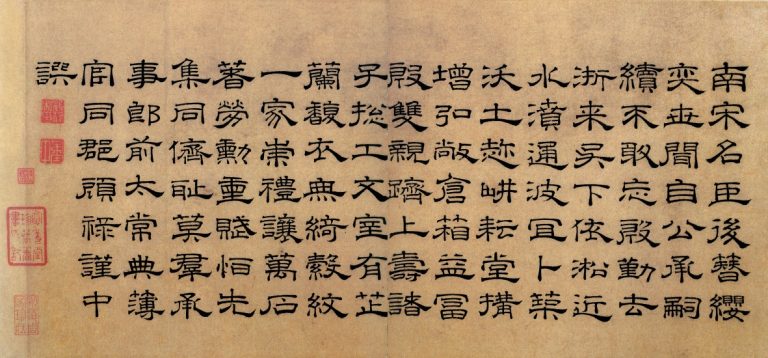 南宋名臣後簪纓
奕世聞自公承嗣
續不敢忘殷勤去
浙来吳下依淞近
水濆通波冝卜築
沃土趂畊耘堂搆
增弘敞倉箱益冨
殷雙親躋上壽諸
子揔工文室有芷
蘭馥衣無綺縠紋
一家崇禮讓萬石
著勞勳重賦恒先
集同儕耻莫羣承
事郎前太常典薄
官同郡顧祿謹中
譔